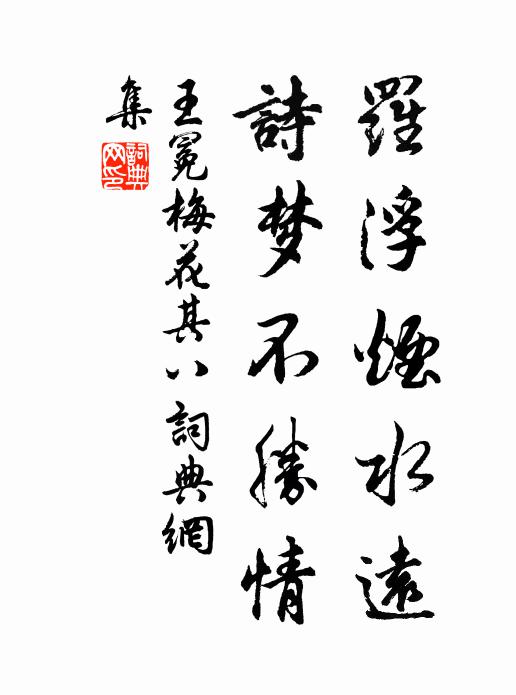 羅浮煙水遠
詩梦不勝情
王冕梅花其八詞典網
集
詞典网印